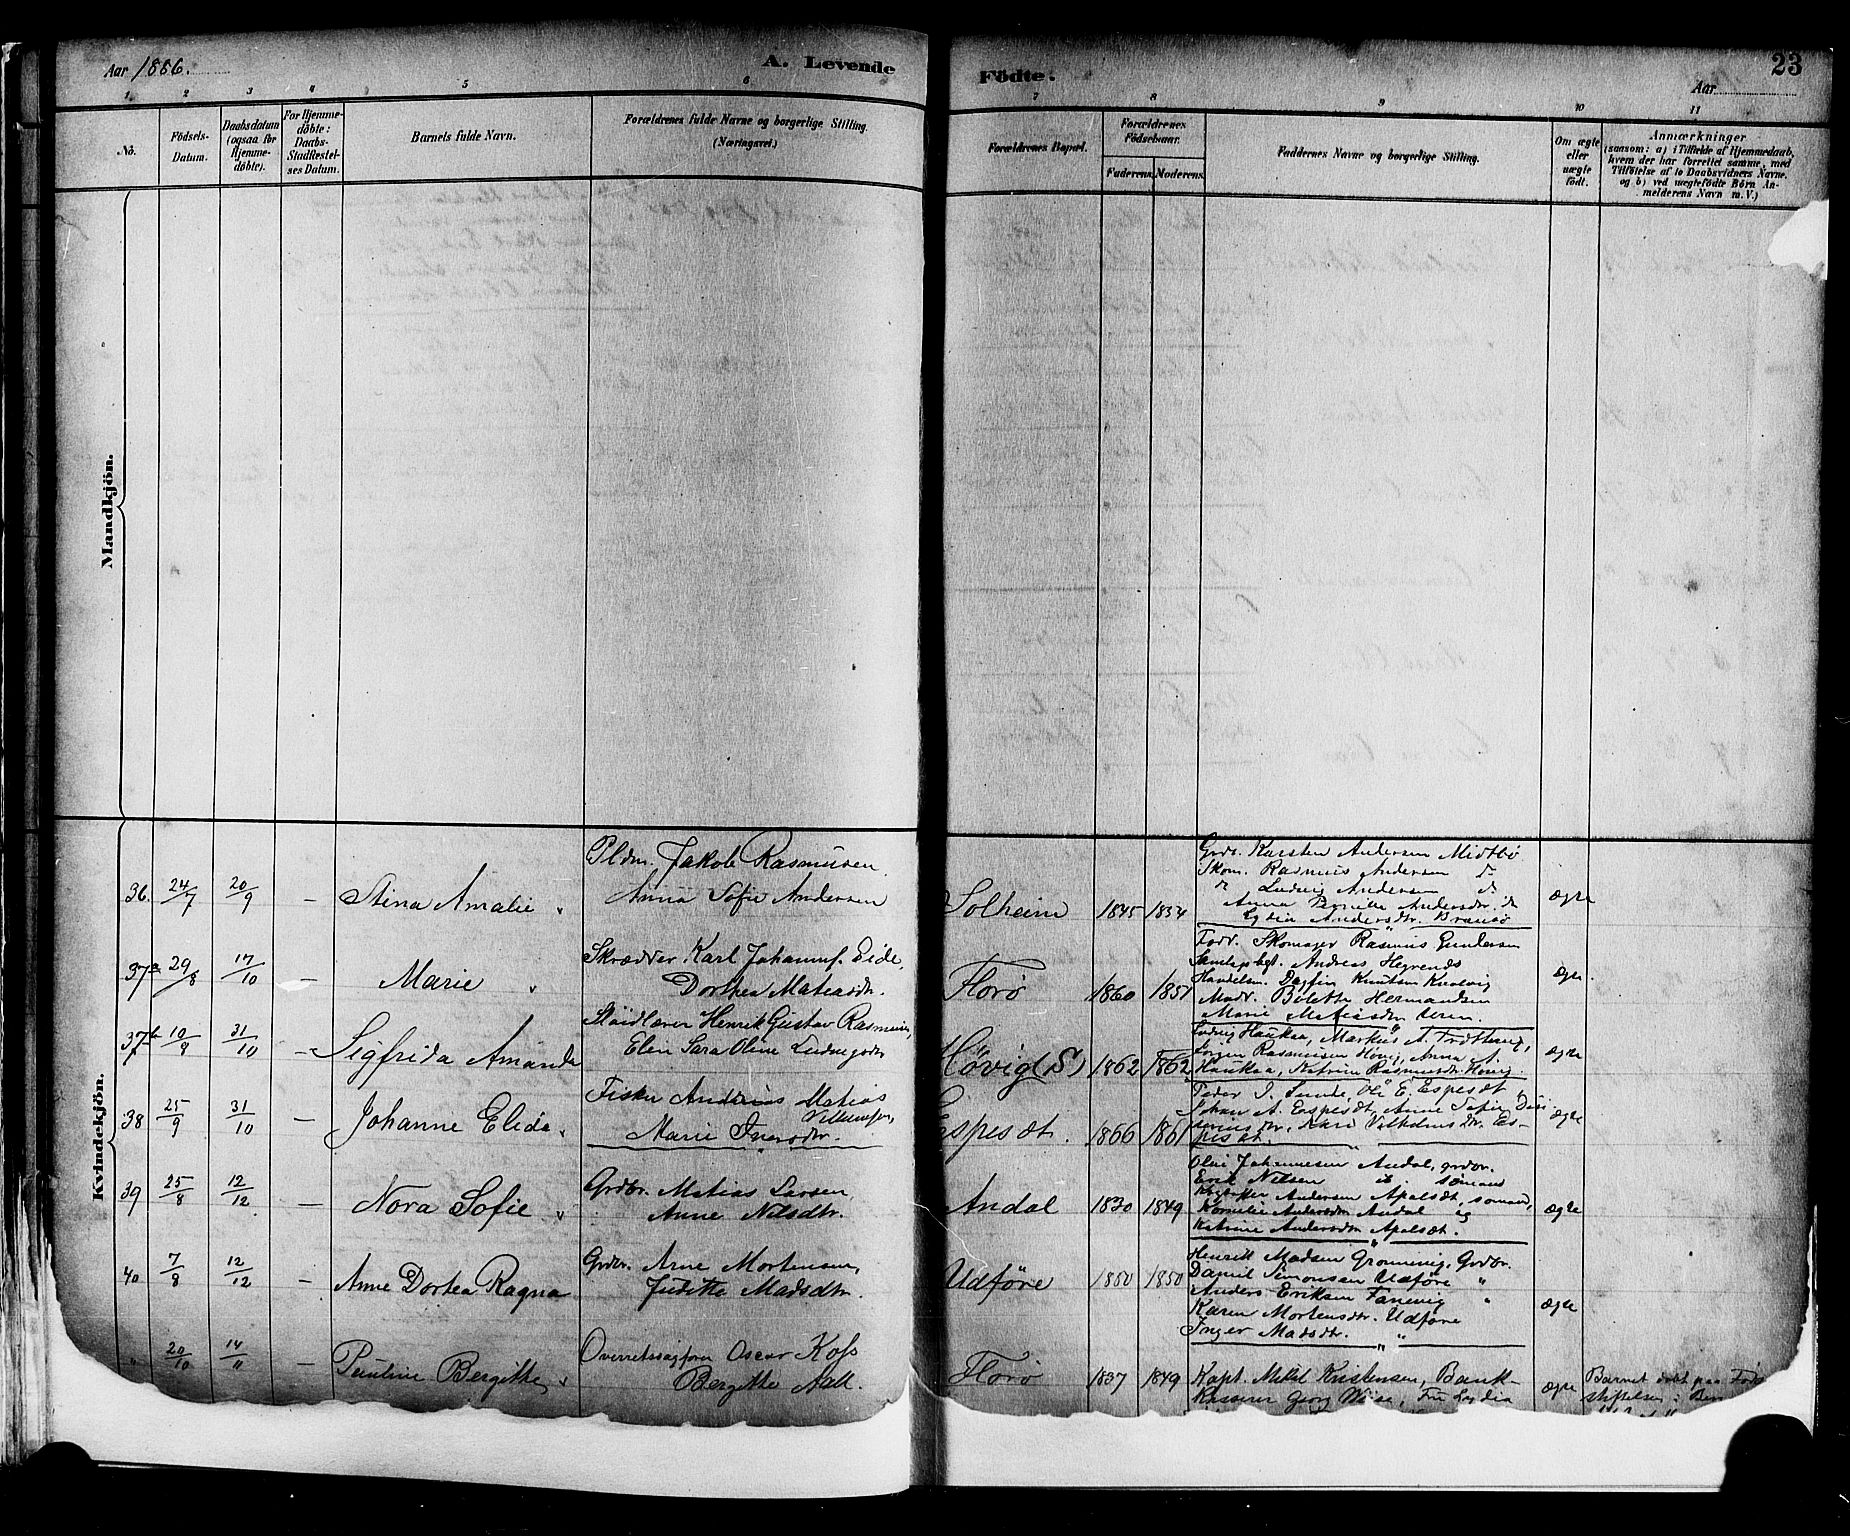 Aar 1886.
A. Levende Födte.
23
Aar
1 2 3 4 5 6 7 8 9 10 11
No.
Födsels-Datum.
Daabsdatum (ogsaa for Hjemme-döbte).
For Hjemme-döbte: Daabs-Stadfæstel-ses Datum.
Barnets fulde Navn.
Forældrenes fulde Navne og borgerlige Stilling. (Næringsvei.)
Forældrenes Bopæl.
Forældrenes Födselsaar.
Faderens. Moderens.
Faddernes Navne og borgerlige Stilling.
Om ægte eller uægte födt.
Anmærkninger
(saasom: a) i Tilfælde af Hjemmedaab, hvem der har forrettet samme, med Tilföielse af to Daabsvidners Navne. og b) ved uægtefödte Börn An-melderens Navn m. V.)
Mandkjön.
Kvindekjön.
36. 24/7 20/9 – Stina Amalie
Pldm. Jakob Rasmusen
Anna Sofie Andersen
Solheim 1845 1854
Grdb. Karsten Andersen Midtbö
Skom. Rasmus Andersen
Ludvig Andersen
Anna Pernille Andersdtr.
Lydia Andersdtr. Brandsö
ægte
37a 29/8 17/10 – Marie
Skrædder Karl Johannes. Eide,
Dorthea Matiasdtr.
Florö 1860 1851
Forv. Skomager Rasmus Gundersen
Andreas Hegrenæs
Handelsm. Dagfin Knutsen
Madr. Bolette Hermansen
Marie Matiasdtr
ægte
37b 10/8 31/10 – Sigfrida Amanda
Henrik Gustav Rasmusen,
Elen Sara Oline Ludvigsdtr
Hövig (S) 1862 1862
Ludvig Haukaa, Markus A.
Jørgen Rasmusen Hövig, Anna A.
Haukaa, Katrine Rasmusdtr. Hövig.
ægte
38 25/9 31/10 – Johanne Elida
Fisker Andreas Matias
Marie Iversdtr.
Espesæt. 1866 1861
Peder I. Sunde, Ole E. Espesæt
Johan A. Espesæt, Anne Sofie
Kari Vilhelmsdtr. Es-
pesæt.
ægte
39 25/8 12/12 – Nora Sofie
Grdbr. Matias Larsen,
Anne Nilsdtr.
Andal 1830 1849
Olai Johannesen Andal, grdbr.
Erik Nilsen sömand
Kristoffer Andersen Apalsæt, sömand,
Kornelia Andersdtr Andal og
Katrine Andersdtr Apalsæt.
ægte
40 7/8 12/12 – Anne Dortea Ragna
Grdbr. Arne Mortensen,
Juditte Madsdtr.
Udföre 1850 1850
Henrik Madsen Grönning, Grdbr.
Daniel Simonsen Udföre "
Anders Eriksen Fanevig "
Karen Mortensdtr. Udföre
Inger Madsdtr. "
ægte
" 20/10 14/11 – Pauline Bergitte
Overretssagförer Oscar Koss
Bergitte Aall.
Florö 1837 1849
Kapt. Mikal Kristensen, Bank-
Kasserer Georg Wiese, Fru Lydia
ægte
Barnet döbt paa Föd-
stiftelsen i Ber